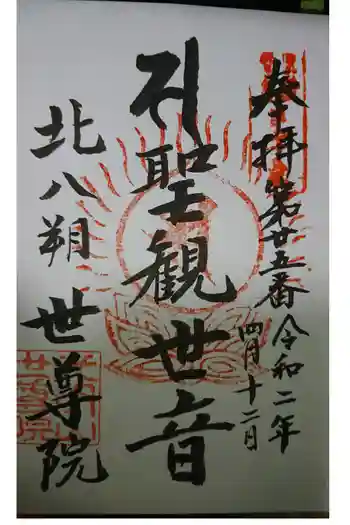 奉拝
第廿五番
令和二年
四月十二月
聖観世音
北八朔
世尊院